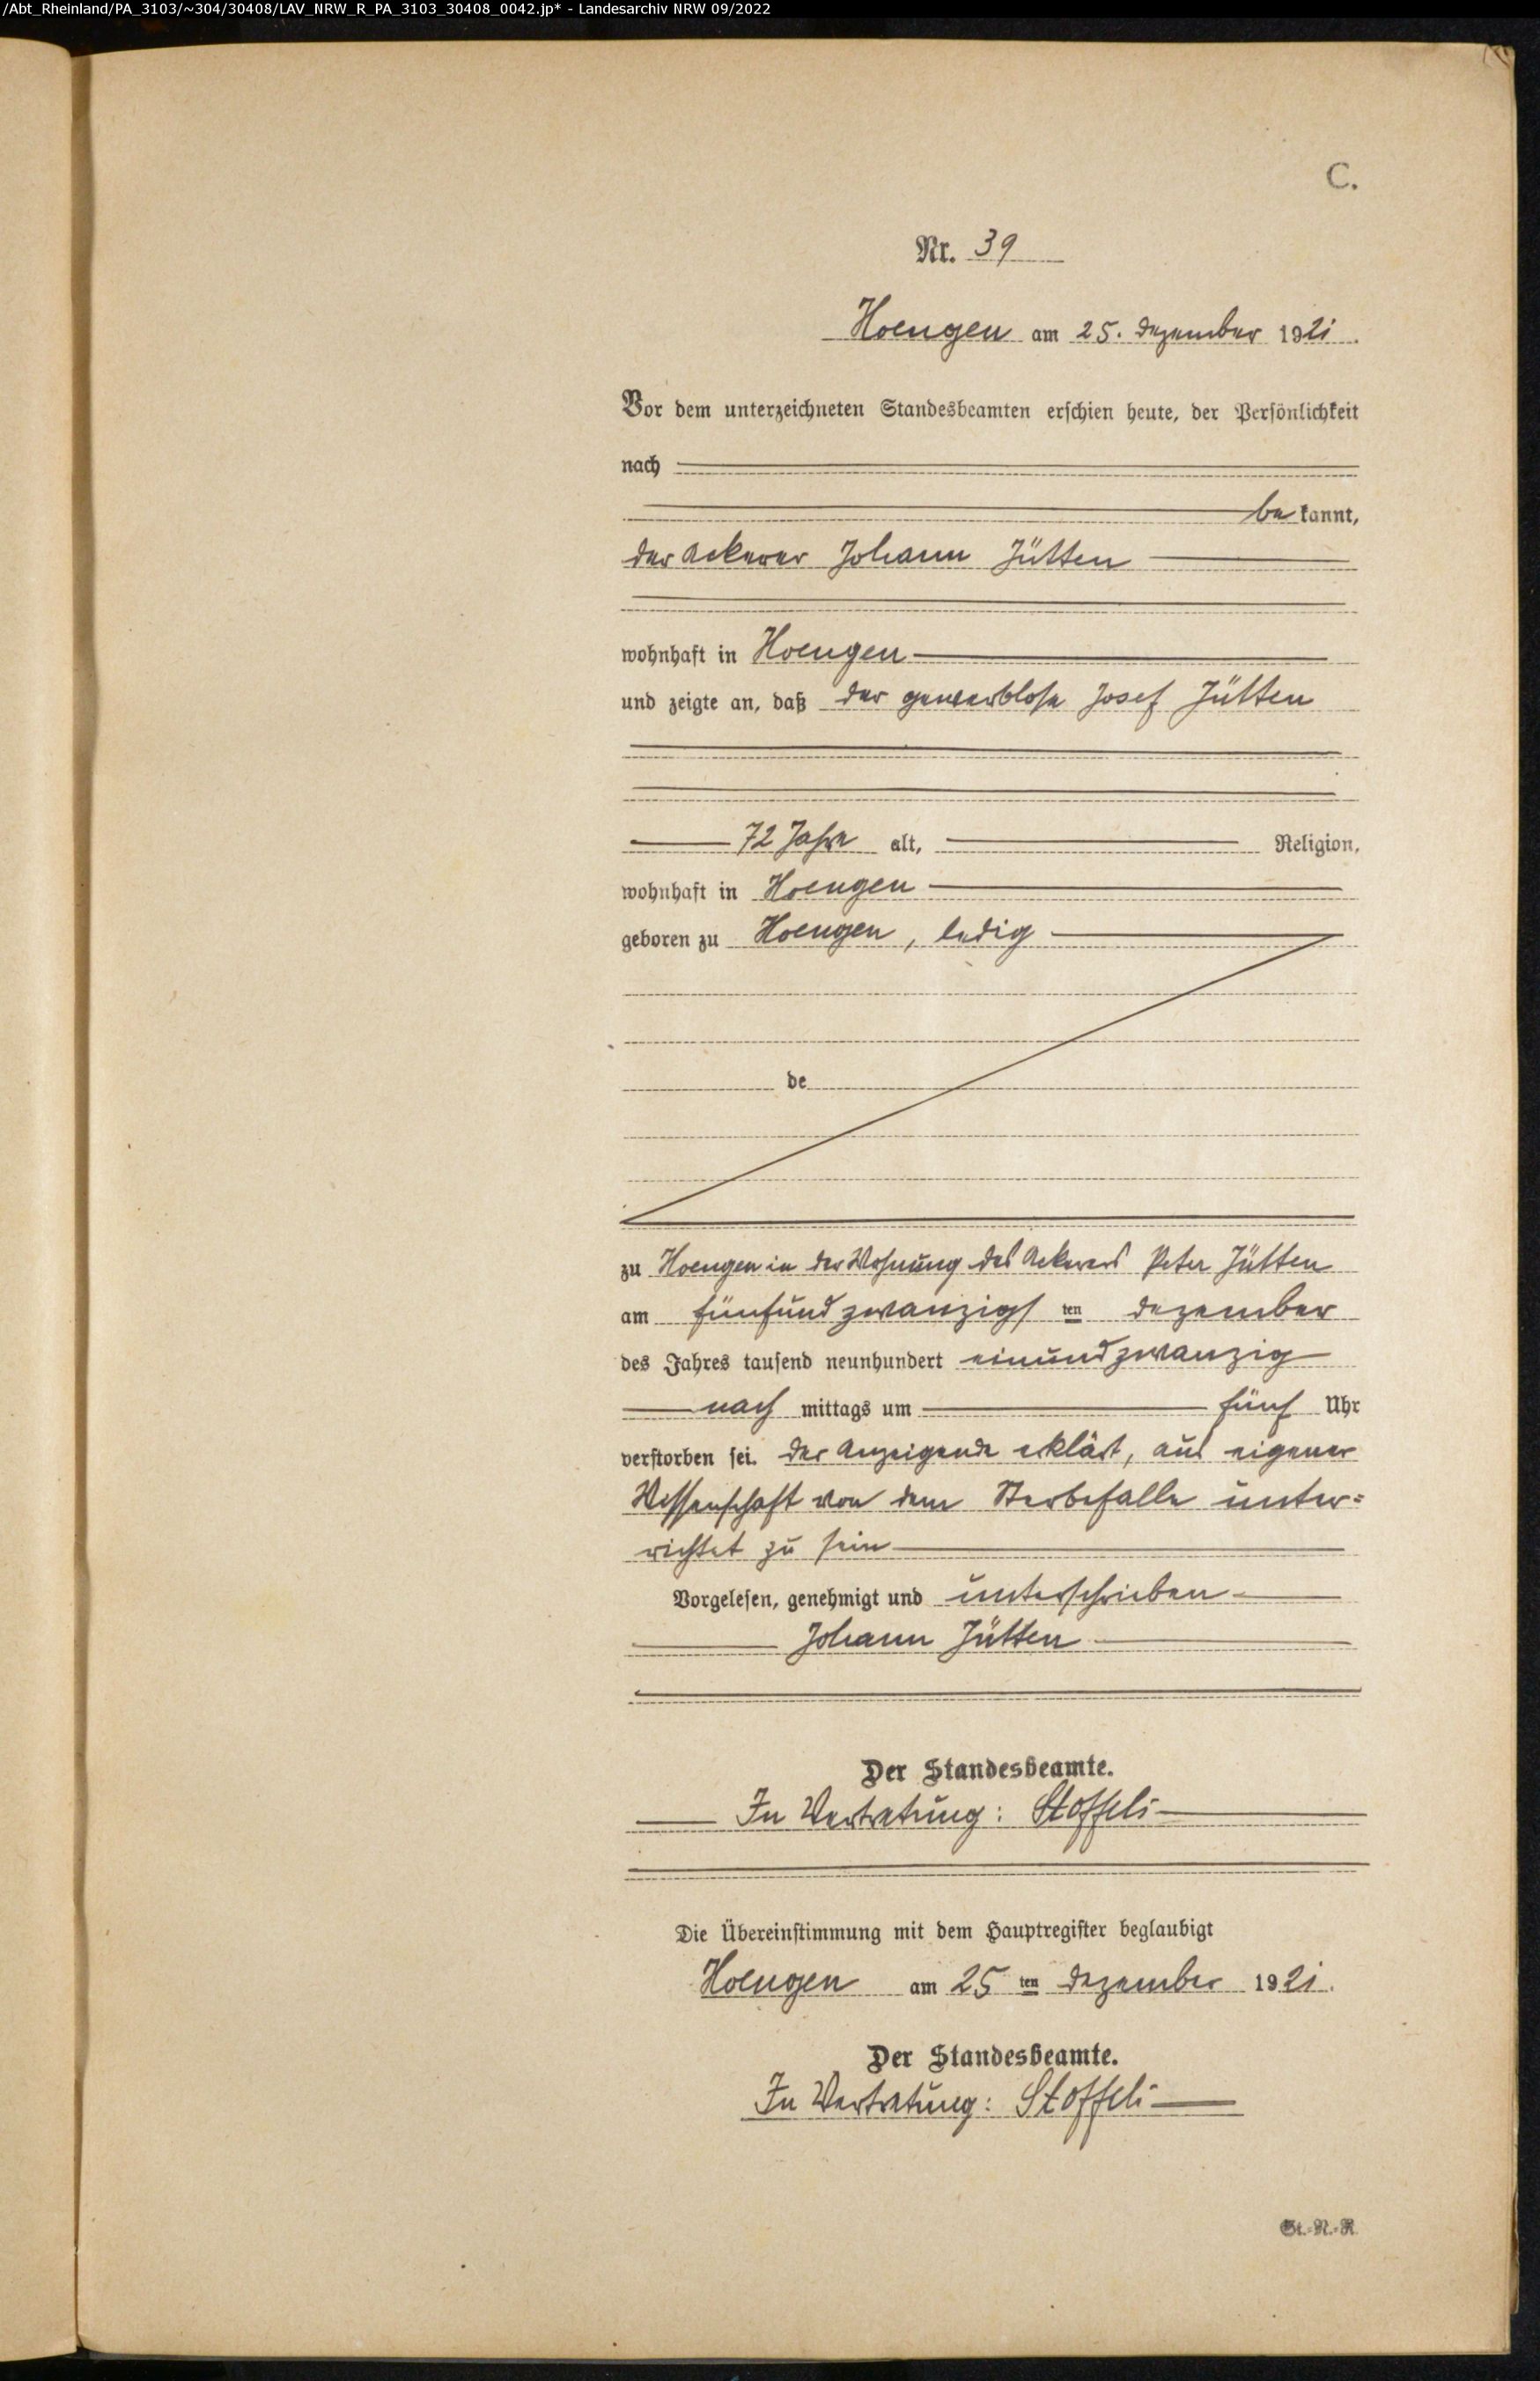 /Abt_Rheinland/PA_3103/~304/30408/LAV_NRW_R_PA_3103_30408_0042.jp* - Landesarchiv NRW 09/2022
C.
Nr. 39
Hoengen am 25. Dezember 1921.
Vor dem unterzeichneten Standesbeamten erschien heute, der Persönlichkeit
nach
be kannt,
der Ackerer Johann Jütten
wohnhaft in Hoengen
und zeigte an, daß der gewerblose Josef Jütten
72 Jahre alt, Religion,
wohnhaft in Hoengen
geboren zu Hoengen, ledig
de
zu Hoengen in der Wohnung des Ackerers Peter Jütten
am fünfundzwanzigs ten Dezember
des Jahres tausend neunhundert einundzwanzig
nach mittags um fünf Uhr
verstorben sei. Der Anzeigende erklärt, aus eigener
Wissenschaft von dem Sterbefalle unter=
richtet zu sein
Vorgelesen, genehmigt und unterschrieben
Johann Jütten
Der Standesbeamte.
In Vertretung: Stoffels
Die Übereinstimmung mit dem Hauptregister beglaubigt
Hoengen am 25 ten Dezember 1921.
Der Standesbeamte.
In Vertretung: Stoffels
St.-N.-R.